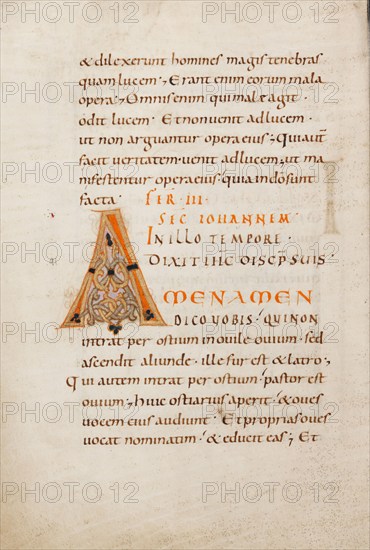 & dilexerunt homines magis tenebras
quam lucem; Erant enim eorum mala
opera; Omnis enim qui male agit·
odit lucem· Et non uenit ad lucem·
ut non arguantur opera eius; Qui aut̄
facit ueritatem· uenit ad lucem; ut ma
nifestentur opera eius· quia in dō sunt
facta· FER· III·
SEC IOHANNEM
IN ILLO TEMPORE·
DIXIT IHC DISCIPSUIS·
AMEN AMEN
DICO UOBIS· QUI NON
intrat per ostium in ouile ouium· sed
ascendit aliunde· ille fur est & latro;
Qui autem intrat per ostium· pastor est
ouium; huic ostiarius aperit· & oues
uocem eius audiunt· Et proprias oues
uocat nominatim· & educit eas; Et
PHOTO 12